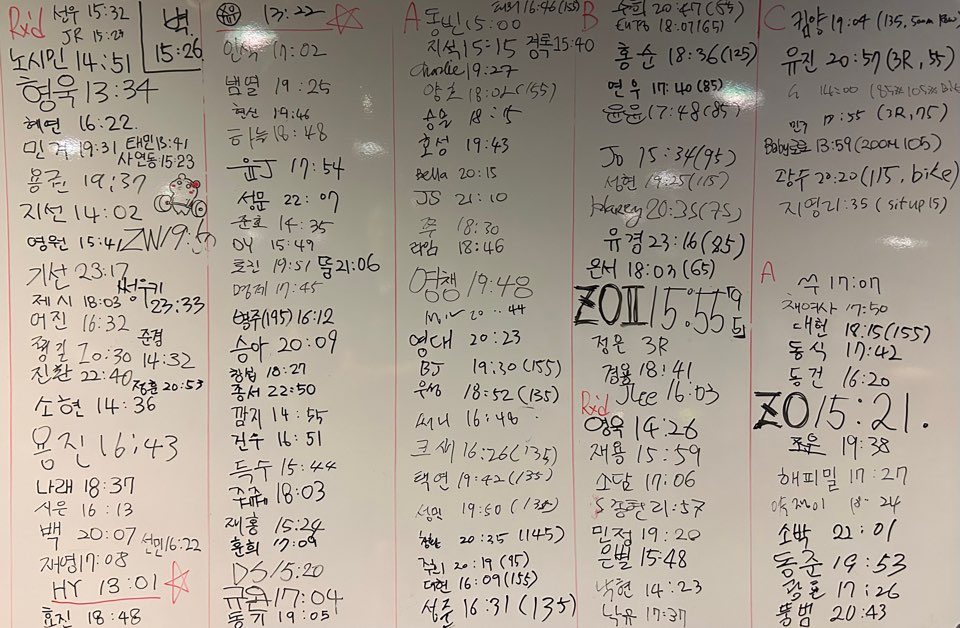 Rx'd
선우 15:32
JR 15:23
벽 15:26
노시민 14:51
형욱 13:34
혜연 16:22
민겨 19:31
태민 13:41
사연동 15:23
용권 19:37
지선 14:02
영원 15:41
ZW 19:5
기선 23:17
제시 18:03
23:33
어진 16:32
준경 14:32
평길 20:30
진환 22:40
정훈 20:53
소현 14:36
용진 16:43
나래 18:37
시은 16:13
백 20:07
선민 16:22
재명 17:08
HY 13:01
효진 18:48
13:22
17:02
범열 19:25
현신 19:46
하늘 18:48
윤J 17:54
서문 22:07
준호 14:35
DY 15:49
로진 19:51
뜸 21:06
명제 17:45
병주(195) 16:12
승아 20:09
창섭 18:27
종서 22:50
깜지 14:55
건수 16:51
득수 15:44
18:03
재홍 15:24
홍희 17:09
DS 15:20
17:04
동기 19:05
A
16:46(155)
동빈 15:00
지석 15:15
정록 15:40
Charlie 19:27
양호 18:02(155)
승율 18:15
호성 19:43
Bella 20:15
JS 21:10
주 18:30
라임 18:46
영쟁 19:48
20:44
영대 20:23
BJ 19:30(155)
우성 18:52(135)
써니 16:48
크새 16:26(135)
택연 19:42(135)
성민 19:50(135)
20:35(145)
주리 20:19(95)
대현 16:09(155)
성준 16:31(135)
B
20:47(55)
태정 18:07(65)
홍순 18:36(125)
연우 17:40(85)
윤윤 17:48(85)
Jo 15:34(95)
성현 19:25(115)
Harry 20:35(75)
유경 23:16(85)
완서 18:03(65)
ZOII 15:55
정은 3R
경용 18:41
Rx'd
Jlee 16:03
영욱 14:26
재용 15:59
소담 17:06
종현 21:57
민정 19:20
은별 15:48
낙현 14:23
낙유 17:37
C
킴양 19:04(135, 500m Row)
유진 20:57(3R, 55)
14:00
민구 17:55(3R, 75)
Baby로로 13:59(200M 105)
광두 20:20(115, bike)
지영 21:35(situp 15)
A
쑤 17:07
채여사 17:50
대헌 18:15(155)
동식 17:42
동건 16:20
ZO 15:21.
19:38
해피밀 17:27
18:24
소박 22:01
동준 19:53
광표 17:26
뚱범 20:43